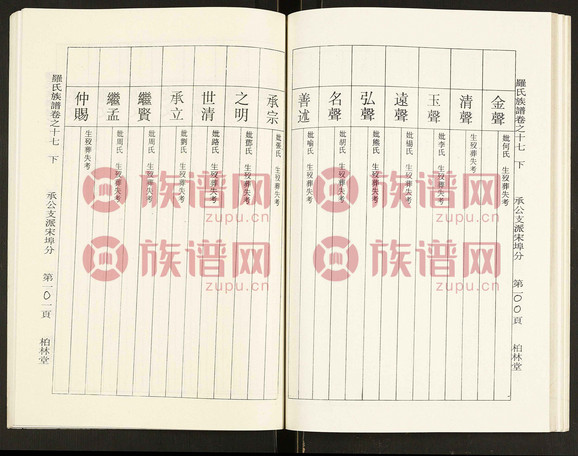 羅氏族譜卷之十七 下 承公支派宋埠分 第一00頁 柏林堂
金聲 妣何氏 生歿葬失考
清聲 生歿葬失考
玉聲 妣李氏 生歿葬失考
遠聲 妣楊氏 生歿葬失考
弘聲 妣熊氏 生歿葬失考
名聲 妣胡氏 生歿葬失考
善述 妣喻氏 生歿葬失考
承宗 妣張氏 生歿葬失考
之明 妣鄧氏 生歿葬失考
世清 妣路氏 生歿葬失考
承立 妣劉氏 生歿葬失考
繼賢 妣周氏 生歿葬失考
繼孟 妣周氏 生歿葬失考
仲賜 生歿葬失考
羅氏族譜卷之十七 下 承公支派宋埠分 第一0一頁 柏林堂
族谱网
zupu.cn
族谱网
zupu.cn
族谱网
zupu.cn
族谱网
zupu.cn